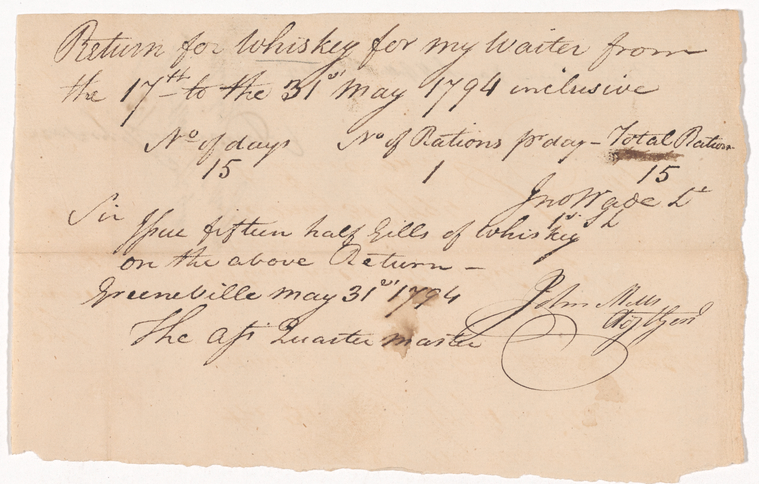 Return for Whiskey for my Waiter from
the 17th to the 31st May 1794 inclusive
No of days No of Rations pr day - Total Ration
15 1 15
Jno Wade Lt
1st S L
Sir
Issue fifteen half Gills of Whiskey
on the above Return -
Greeneville May 31st 1794
John Mills
Adj Genl
The Asst Quarter master